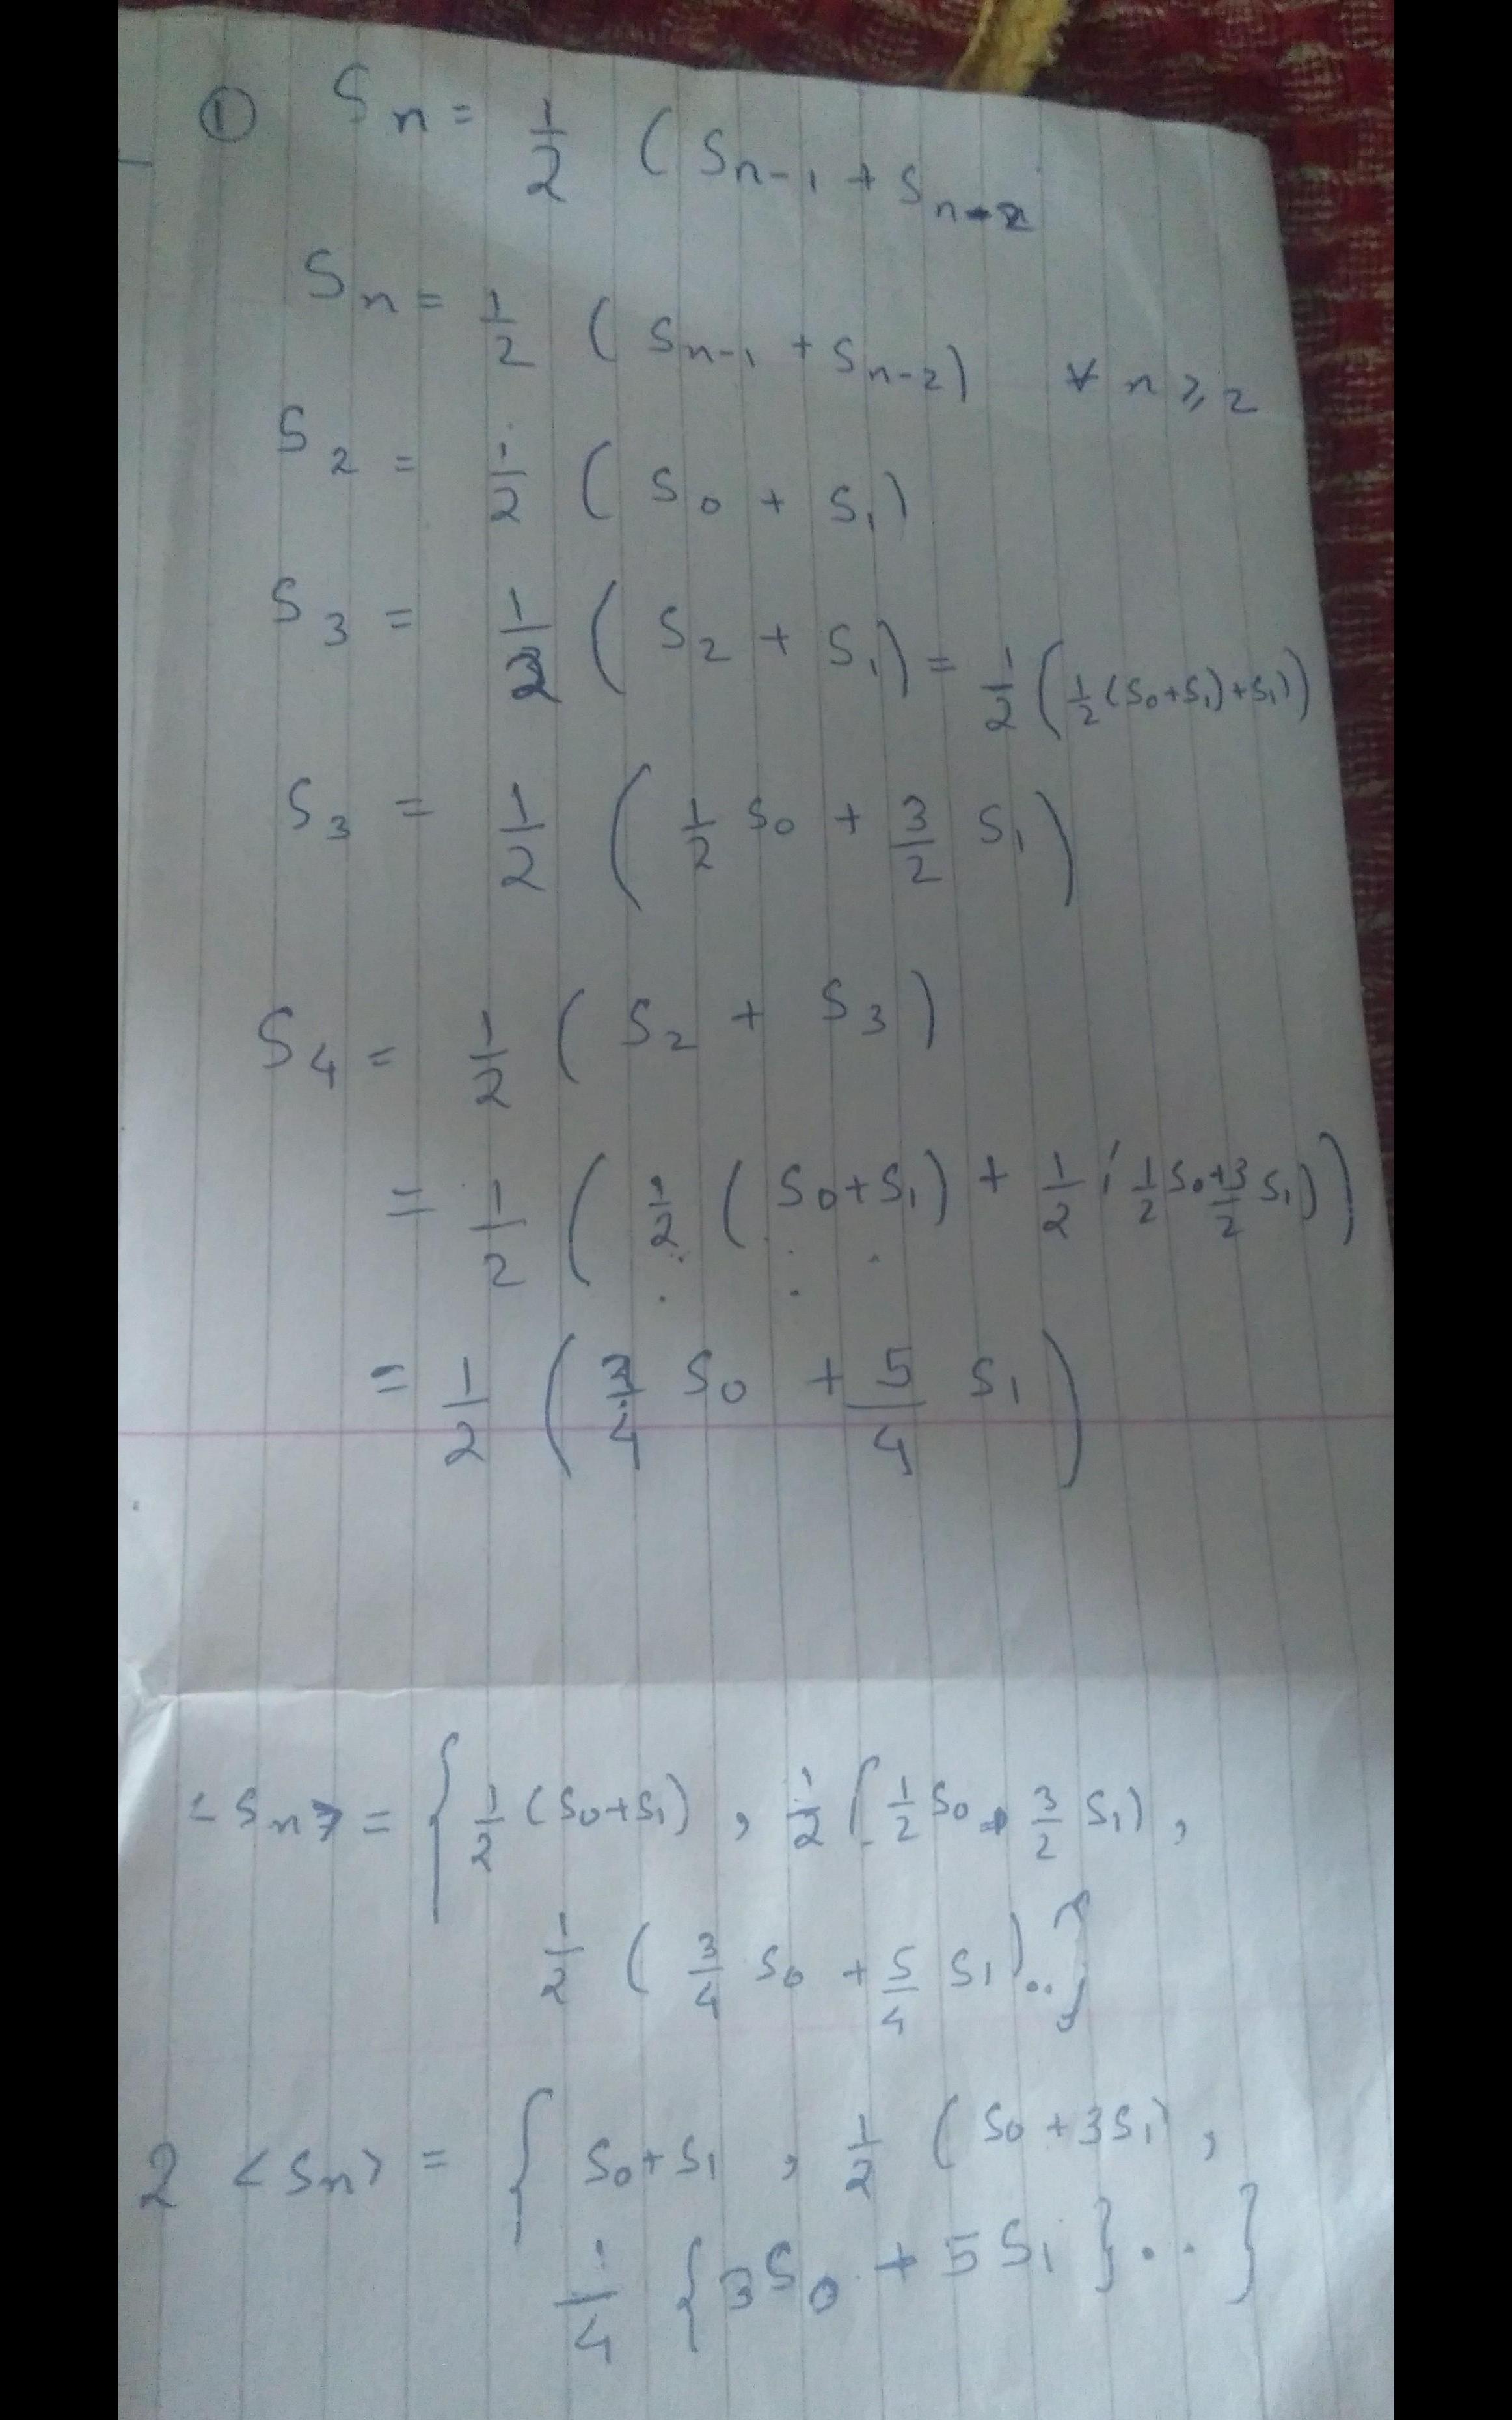 ① Sn = 1/2 ( Sn-1 + Sn-2
Sn = 1/2 ( Sn-1 + Sn-2 ) ∀ n ≥ 2
S2 = 1/2 ( S0 + S1 )
S3 = 1/2 ( S2 + S1 ) = 1/2 ( 1/2 (S0+S1) + S1 )
S3 = 1/2 ( 1/2 S0 + 3/2 S1 )
S4 = 1/2 ( S2 + S3 )
= 1/2 ( 1/2 ( S0+S1 ) + 1/2 ( 1/2 S0 + 3/2 S1 ) )
= 1/2 ( 3/4 S0 + 5/4 S1 )
<Sn> = { 1/2 (S0+S1) , 1/2 ( 1/2 S0 + 3/2 S1 ) ,
1/2 ( 3/4 S0 + 5/4 S1 ) .. }
2 <Sn> = { S0+S1 , 1/2 ( S0 + 3S1 ) ,
1/4 { 3S0 + 5S1 } .. }